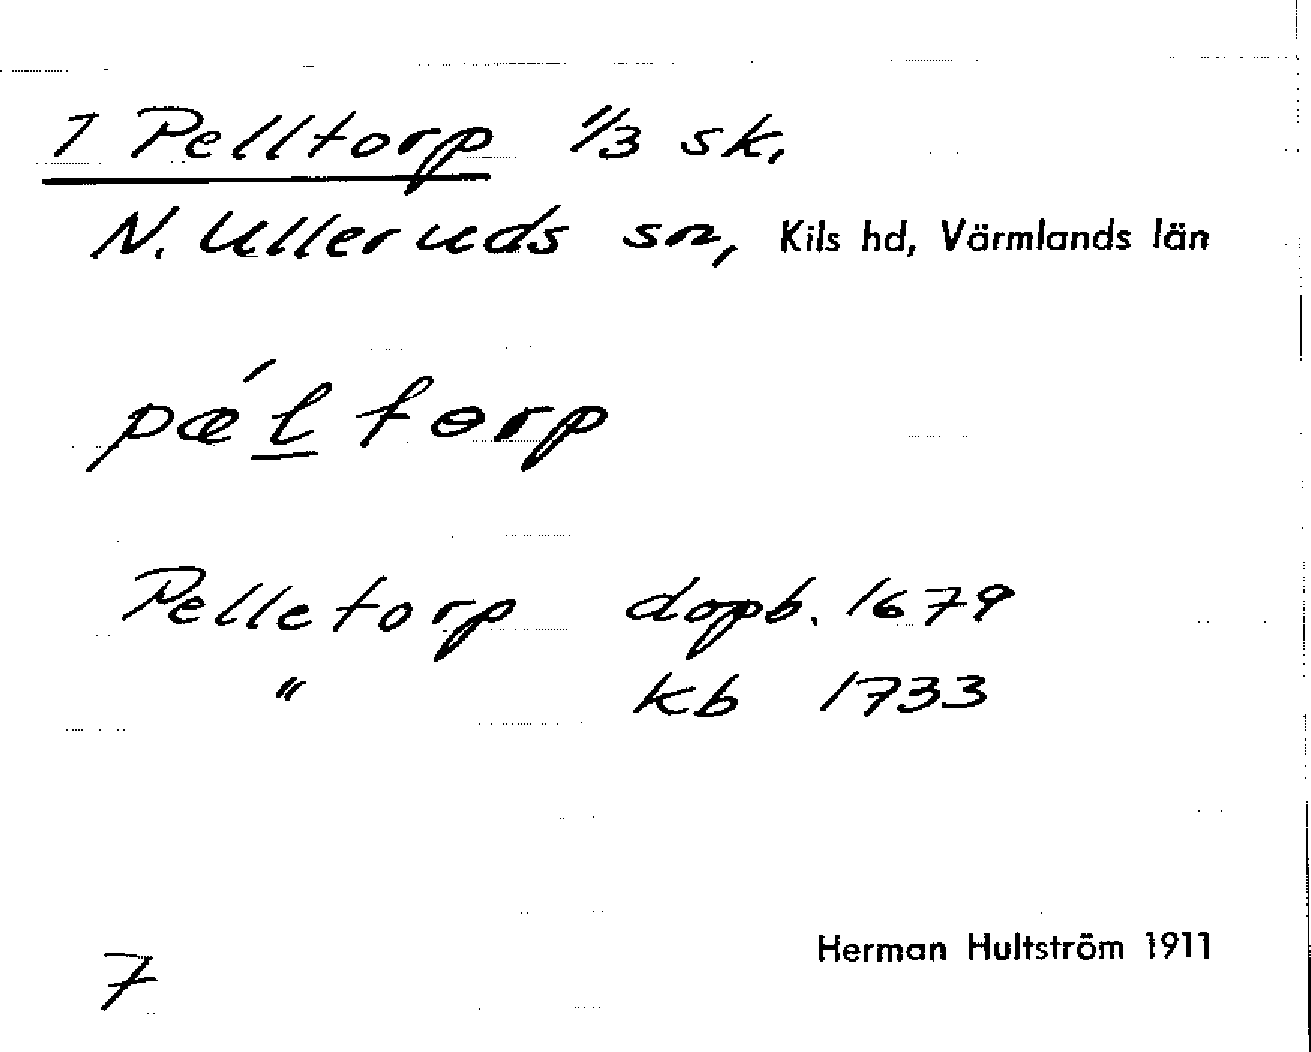 1 Pelltorp 1/3 sk,
N. Ulleruds sn, Kils hd, Värmlands län
pæ´l torp
Pelletorp dopb. 1679
" kb 1733
Herman Hultström 1911
7